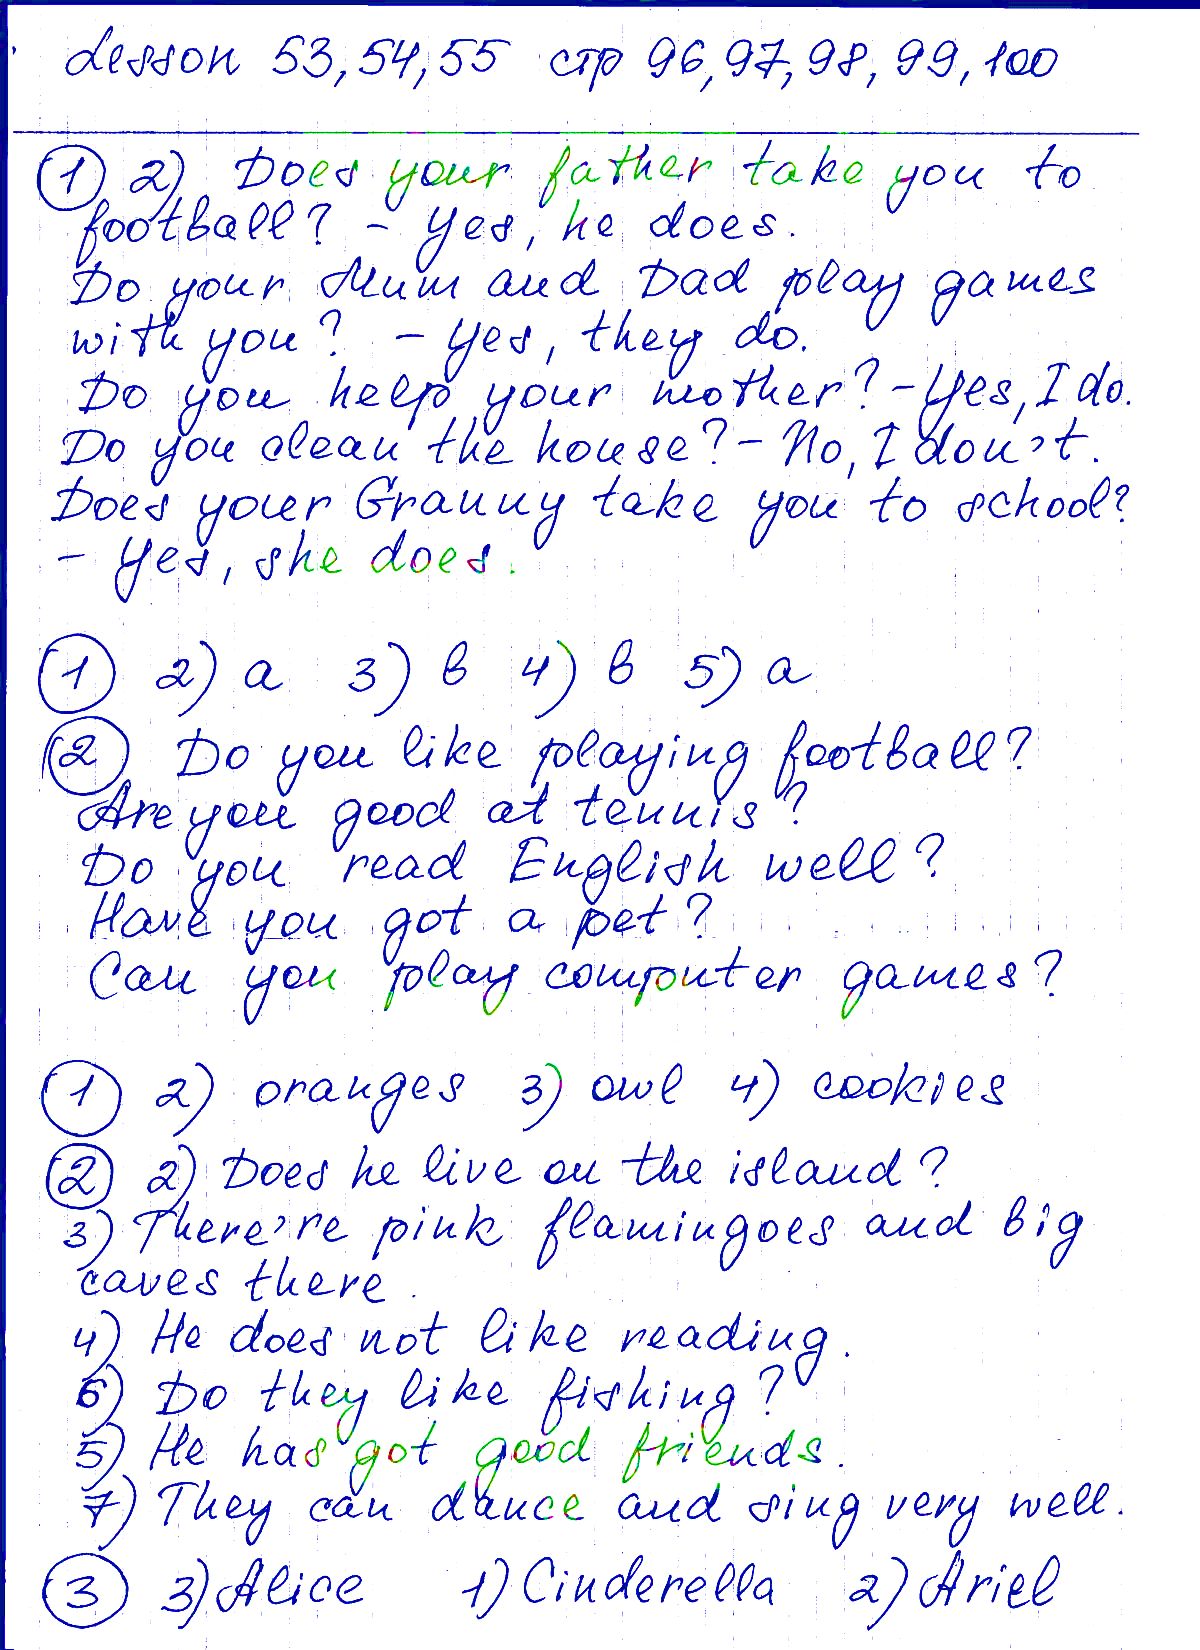 Lesson 53, 54, 55 стр 96, 97, 98, 99, 100
① 2) Does your father take you to
football? - Yes, he does.
Do your Mum and Dad play games
with you? - Yes, they do.
Do you help your mother? - Yes, I do.
Do you clean the house? - No, I don't.
Does your Granny take you to school?
- Yes, she does.
① 2) a 3) в 4) в 5) a
② Do you like playing football?
Are you good at tennis?
Do you read English well?
Have you got a pet?
Can you play computer games?
① 2) oranges 3) owl 4) cookies
② 2) Does he live on the island?
3) There're pink flamingoes and big
caves there.
4) He does not like reading.
6) Do they like fishing?
5) He has got good friends.
7) They can dance and sing very well.
③ 3) Alice 1) Cinderella 2) Ariel